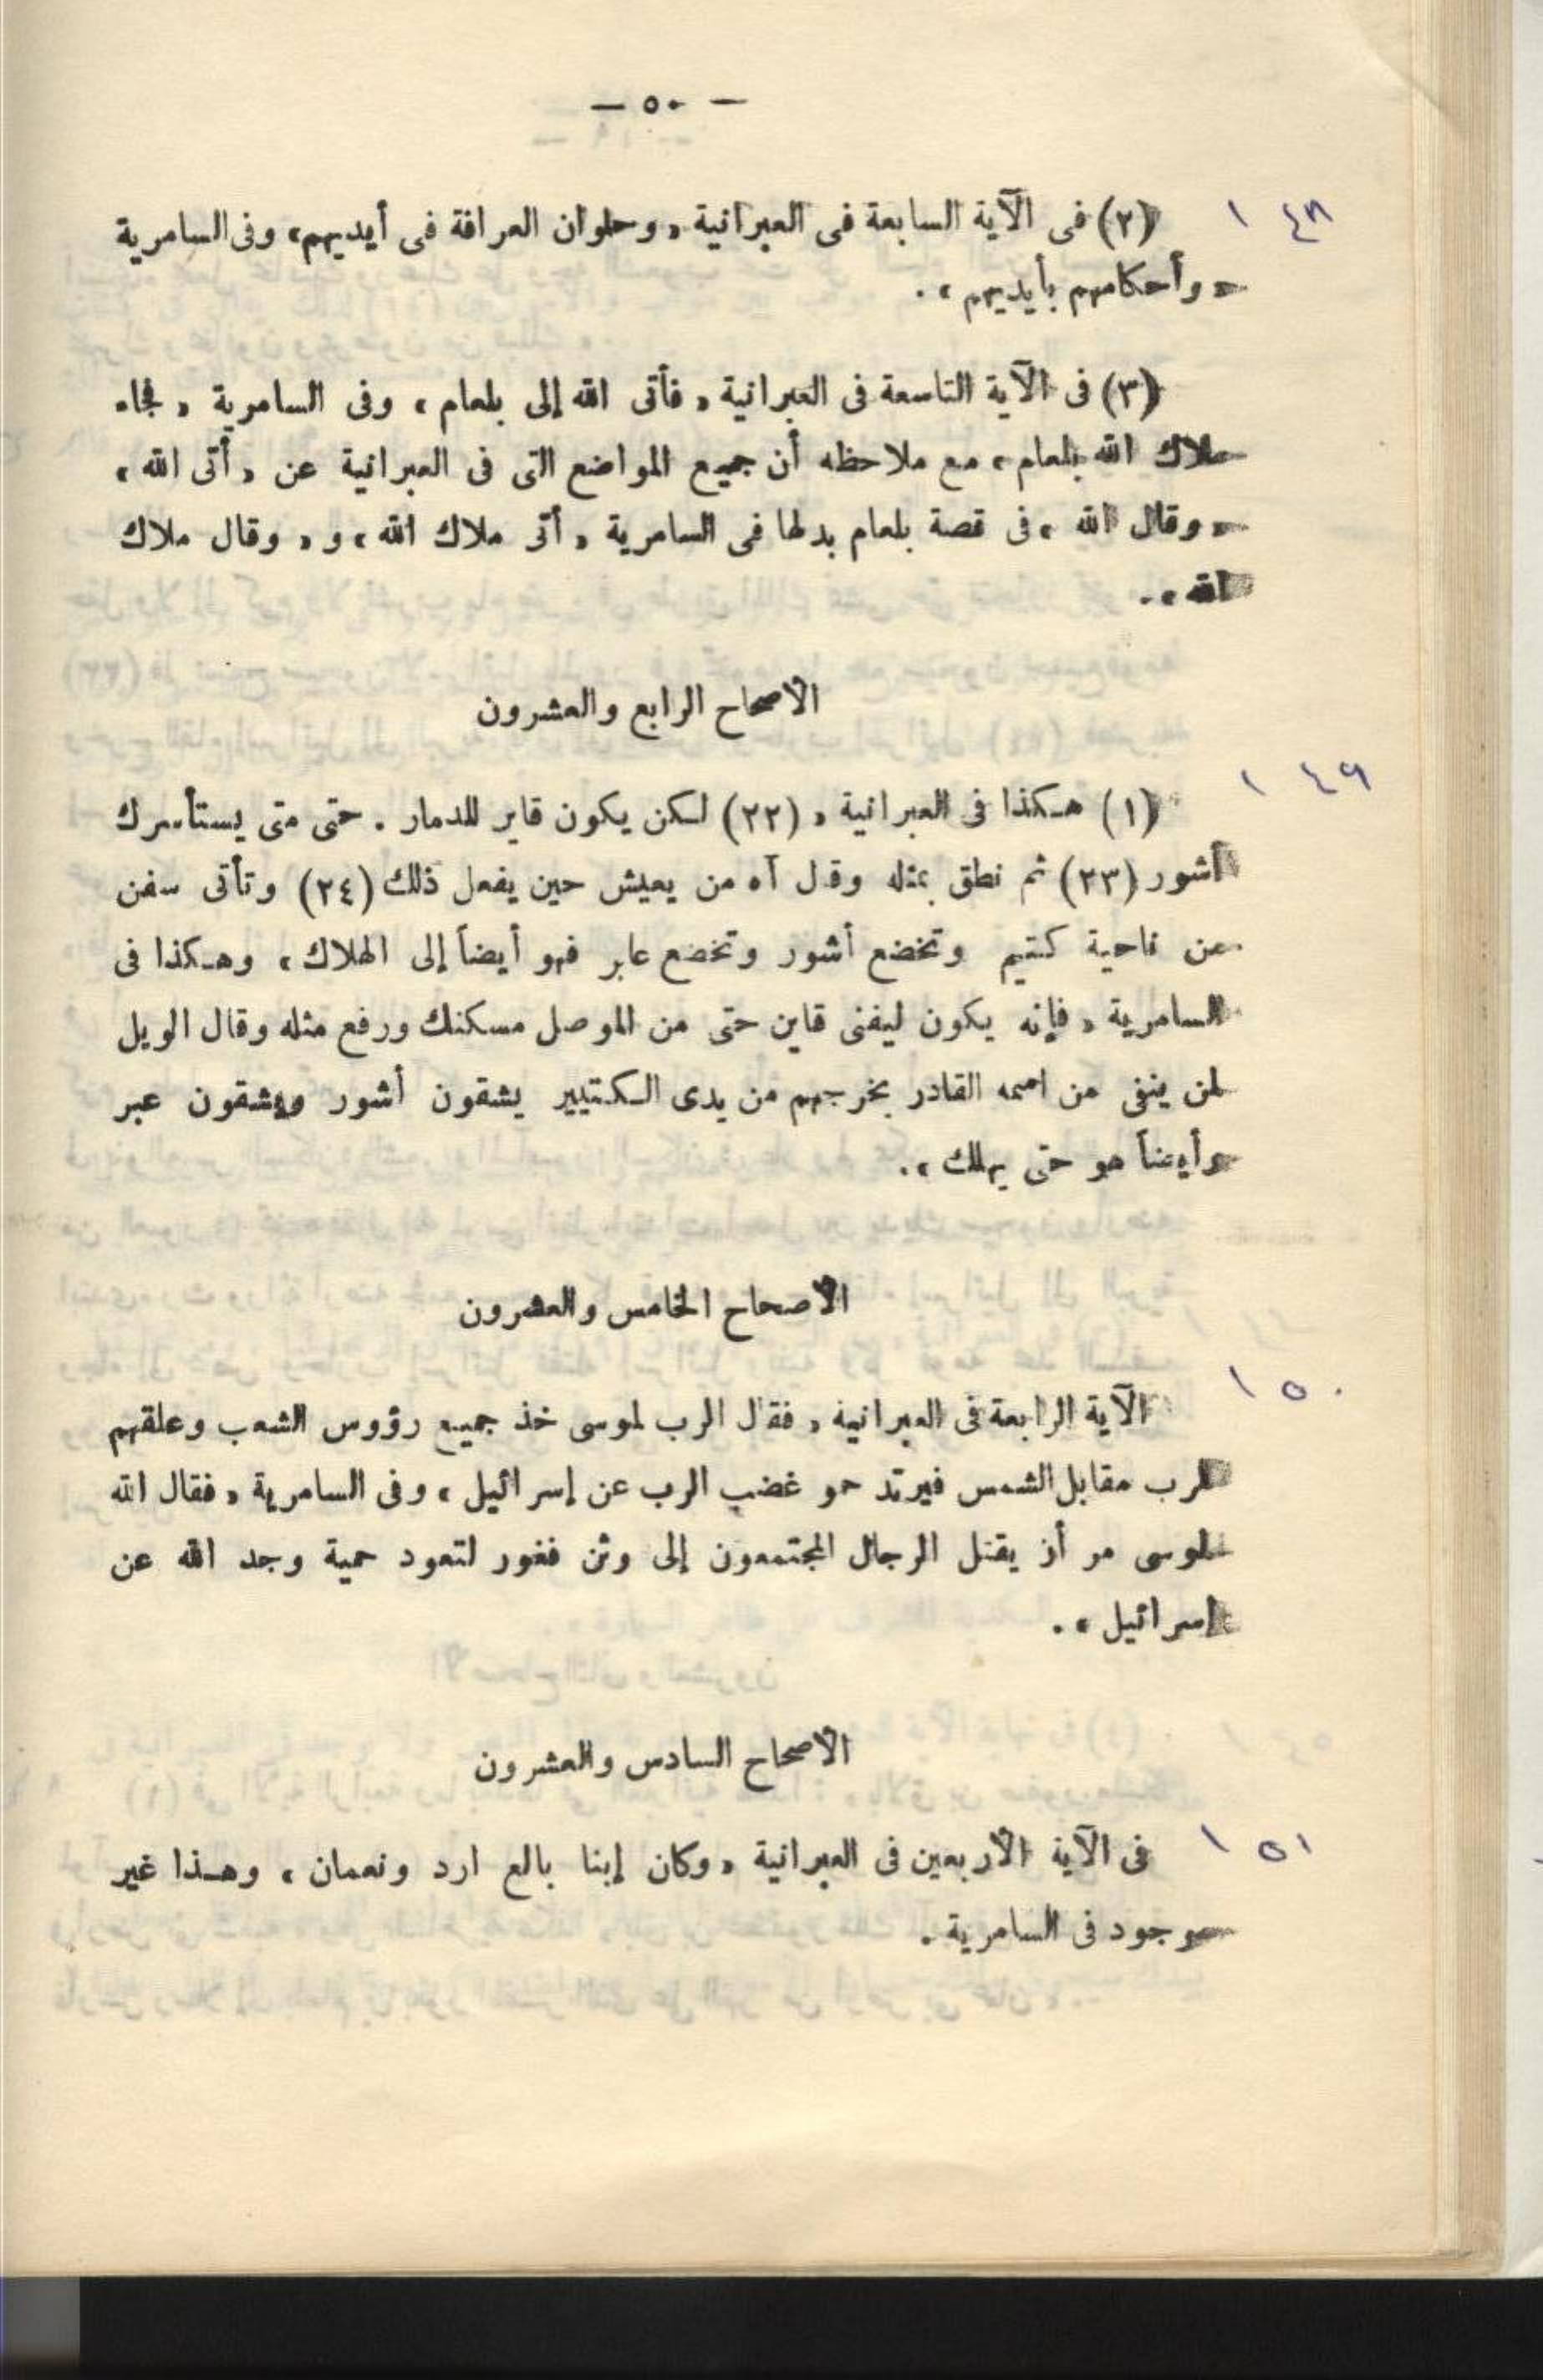 — ٥٠ —
١٤٨
(٢) فى الآية السابعة فى العبرانية « وحلوان العرافة فى أيديهم » وفى السامرية
« وأحكامهم بأيديهم » .
(٣) فى الآية التاسعة فى العبرانية « فأتى الله إلى بلعام » وفى السامرية « فجاء
ملاك الله بلعام » مع ملاحظه أن جميع المواضع التى فى العبرانية عن « أتى الله »
« وقال الله » فى قصة بلعام بدلها فى السامرية « أتى ملاك الله » و « وقال ملاك
الله » .
الاصحاح الرابع والعشرون
١٤٩
(١) هكذا فى العبرانية « (٢٢) لكن يكون قاين للدمار . حتى متى يستأسرك
أشور (٢٣) ثم نطق بمثله وقال آه من يعيش حين يفعل ذلك (٢٤) وتأتى سفن
من ناحية كتيم وتخضع أشور وتخضع عابر فهو أيضاً إلى الهلاك » وهكذا فى
السامرية « فإنه يكون ليفنى قاين حتى من الموصل مسكنك ورفع مثله وقال الويل
لمن ينفى من اسمه القادر يخرجهم من يدى الكتيير يشقون أشور ويشقون عبر
وأيضاً هو حتى يهلك » .
الاصحاح الخامس والعشرون
١٥٠
الآية الرابعة فى العبرانية « فقال الرب لموسى خذ جميع رؤوس الشعب وعلقهم
للرب مقابل الشمس فيرتد حمو غضب الرب عن إسرائيل » وفى السامرية « فقال الله
لموسى مر أن يقتل الرجال المجتمعون إلى وثن فغور لتعود حمية وجد الله عن
إسرائيل » .
الاصحاح السادس والعشرون
١٥١
فى الآية الأربعين فى العبرانية « وكان إبنا بالع ارد ونعمان » وهذا غير
موجود فى السامرية .